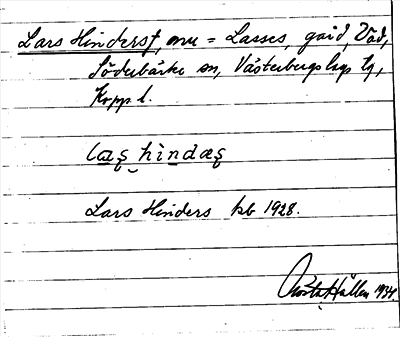 Lars Hinders†, nu = Lasses, gård, Vad,
Söderbärke sn, Västerbergslags tg,
Kopp. l.
Lars Hinders kb 1928.
Gösta Hallen 1934.